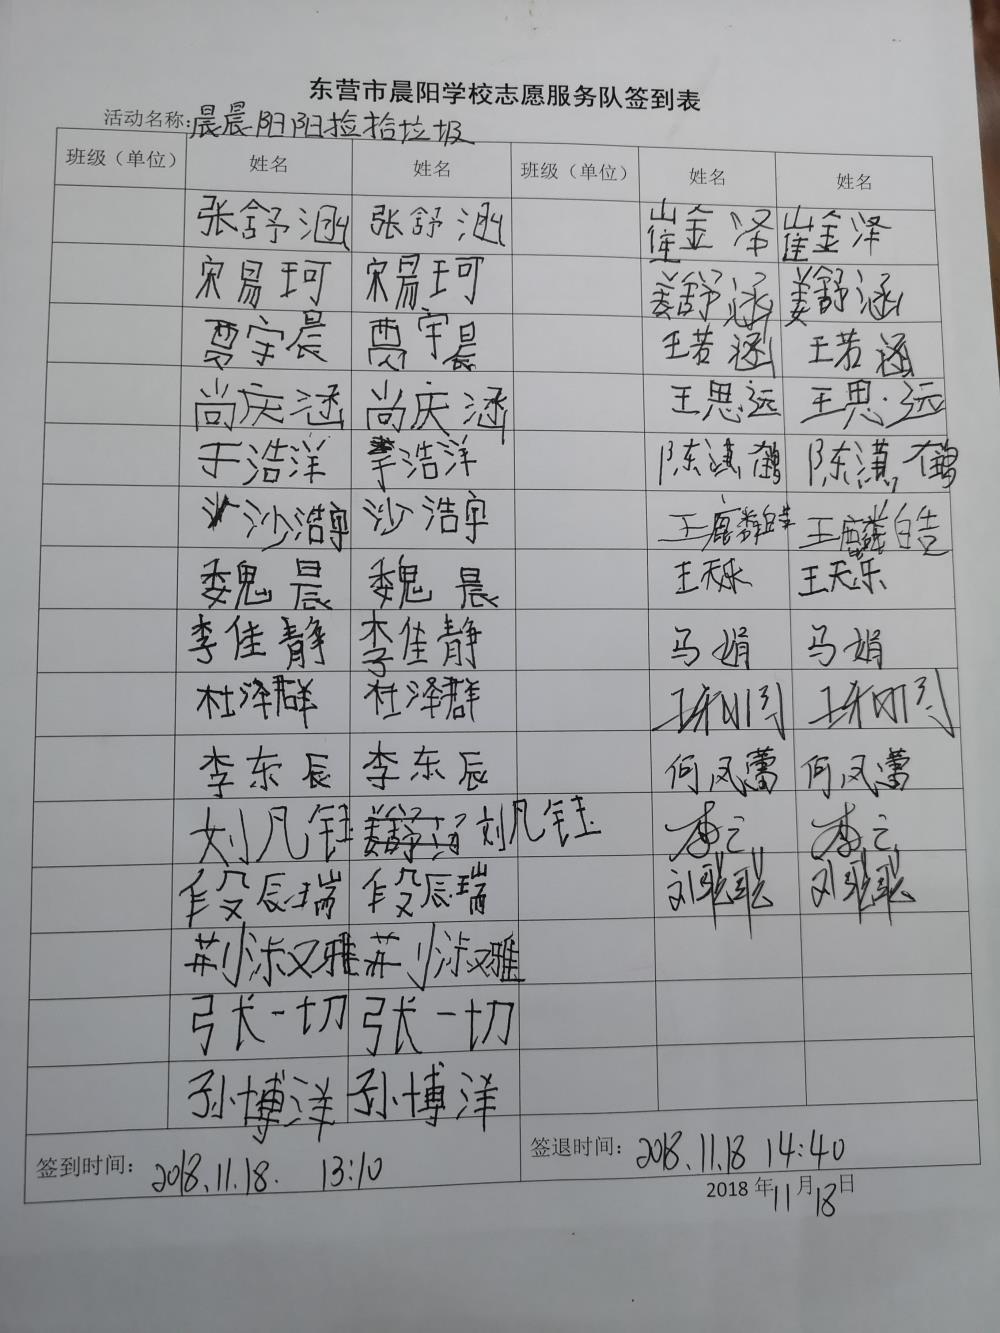 东营市晨阳学校志愿服务队签到表
活动名称:晨晨阳阳捡拾垃圾
班级（单位） 姓名 姓名 班级（单位） 姓名 姓名
张舒涵 张舒涵 崔金泽 崔金泽
宋易珂 宋易珂 姜舒涵 姜舒涵
贾宇晨 贾宇晨 王若涵 王若涵
尚庆涵 尚庆涵 王思远 王思远
于浩洋 李浩洋 陈淇鹤 陈淇鹤
沙浩宇 沙浩宇 王麟皓 王麟皓
魏晨 魏晨 王天乐 王天乐
李佳静 李佳静 马娟 马娟
杜泽群 杜泽群
李东辰 李东辰 何凤蕾 何凤蕾
刘凡钰 刘凡钰
段辰瑞 段辰瑞 刘聪聪 刘聪聪
荆淑雅 荆淑雅
张一切 张一切
孙博洋 孙博洋
签到时间: 2018.11.18. 13:10 签退时间: 2018.11.18 14:40
2018年11月18日